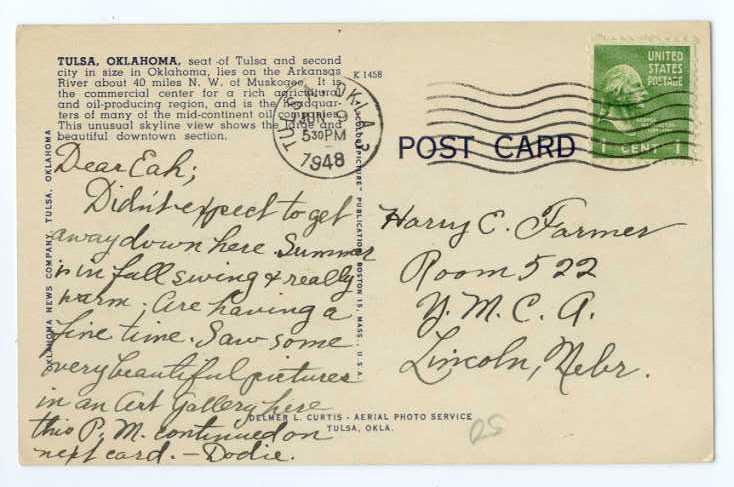 TULSA, OKLAHOMA, seat of Tulsa and second
city in size in Oklahoma, lies on the Arkansas
River about 40 miles N. W. of Muskogee. It is
the commercial center for a rich agricultural
and oil-producing region, and is the headquar-
ters of many of the mid-continent oil companies.
This unusual skyline view shows the large and
beautiful downtown section.
K 1458
TULSA OKLA. 2
JUN
5 30 PM
1948
UNITED
STATES
POSTAGE
1 CENT 1
POST CARD
OKLAHOMA NEWS COMPANY, TULSA, OKLAHOMA
"COLORPICTURE" PUBLICATION BOSTON 15, MASS., U.S.A.
Dear Eah;
Didn't expect to get
away down here. Summer
is in full swing & really
warm. Are having a
fine time. Saw some
very beautiful pictures
in an Art Gallery here
this P. M. continued on
next card. - Dodie.
Harry E. Farmer
Room 522
Y. M. C. A.
Lincoln, Nebr.
DELMER L. CURTIS - AERIAL PHOTO SERVICE
TULSA, OKLA.